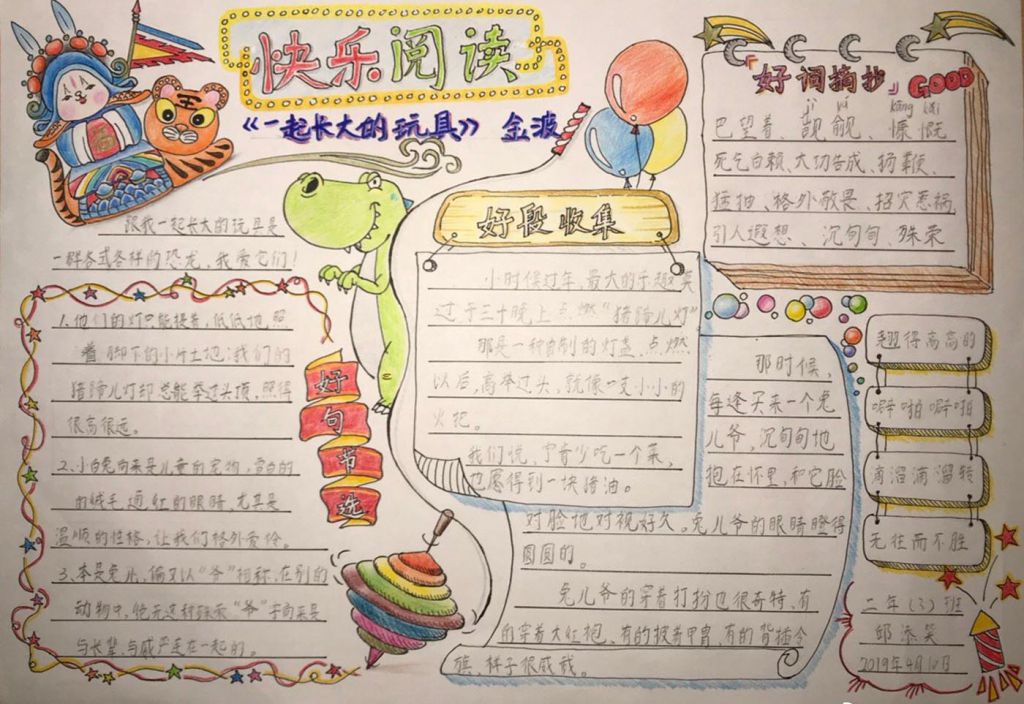 快乐阅读
《一起长大的玩具》 金波
跟我一起长大的玩具是
一群各式各样的恐龙，我爱它们！
1.他们的灯只能提着，低低地，照
着脚下的小片土地；我们的
猪蹄儿灯却总能举过头顶，照得
很高很远。
2.小白兔向来是儿童的宠物，雪白的
的绒毛，通红的眼睛，尤其是
温顺的性格，让我们格外爱怜。
3.本是兔儿，偏又以“爷”相称，在别的
动物中，绝无这种殊荣“爷”字向来是
与长辈、与威严连在一起的。
好句节选
好段收集
小时候过年，最大的乐趣莫
过于三十晚上点燃“猪蹄儿灯”
那是一种自制的灯盏，点燃
以后，高举过头，就像一支小小的
火把。
我们说，宁肯少吃一个菜，
也愿得到一块猪油。
那时候，
每逢买来一个兔
儿爷，沉甸甸地
抱在怀里，和它脸
对脸地对视好久。兔儿爷的眼睛瞪得
圆圆的。
兔儿爷的穿着打扮也很奇特，有
的穿着大红袍，有的披着甲胄，有的背插令
旗，样子很威武。
「好词摘抄」GOOD
jì yú kāng kǎi
巴望着、觊觎、慷慨
死乞白赖、大功告成、扬鞭、
猛抽、格外敬畏、招灾惹祸
引人遐想、沉甸甸、殊荣
翘得高高的
噼啪噼啪
滴溜滴溜转
无往而不胜
二年（3）班
邱添笑
2019年4月10日